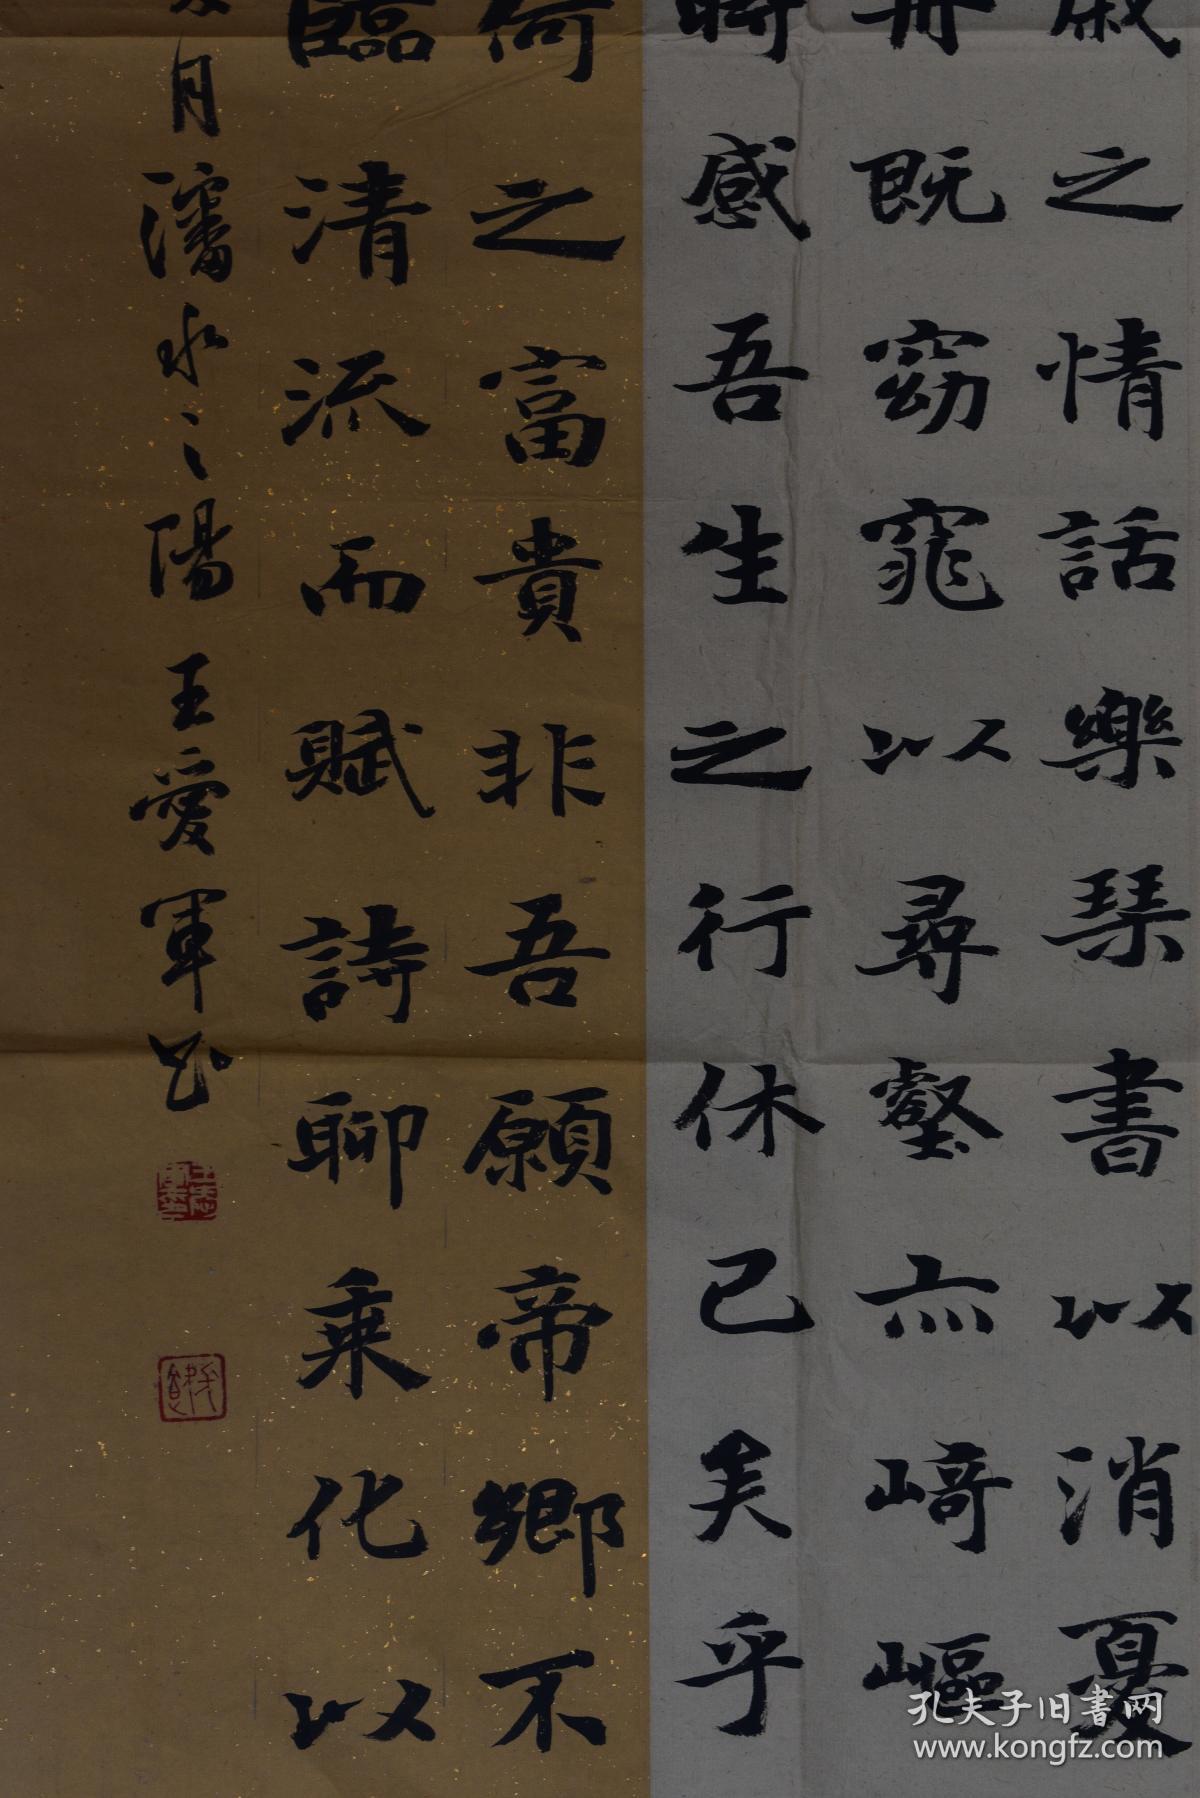 戚之情話樂琴書以消憂
舟既窈窕以尋壑亦崎嶇
時感吾生之行休已矣乎
何之富貴非吾願帝鄉不
臨清流而賦詩聊乘化以
月瀋水之陽王愛軍书
孔夫子旧书网
www.kongfz.com